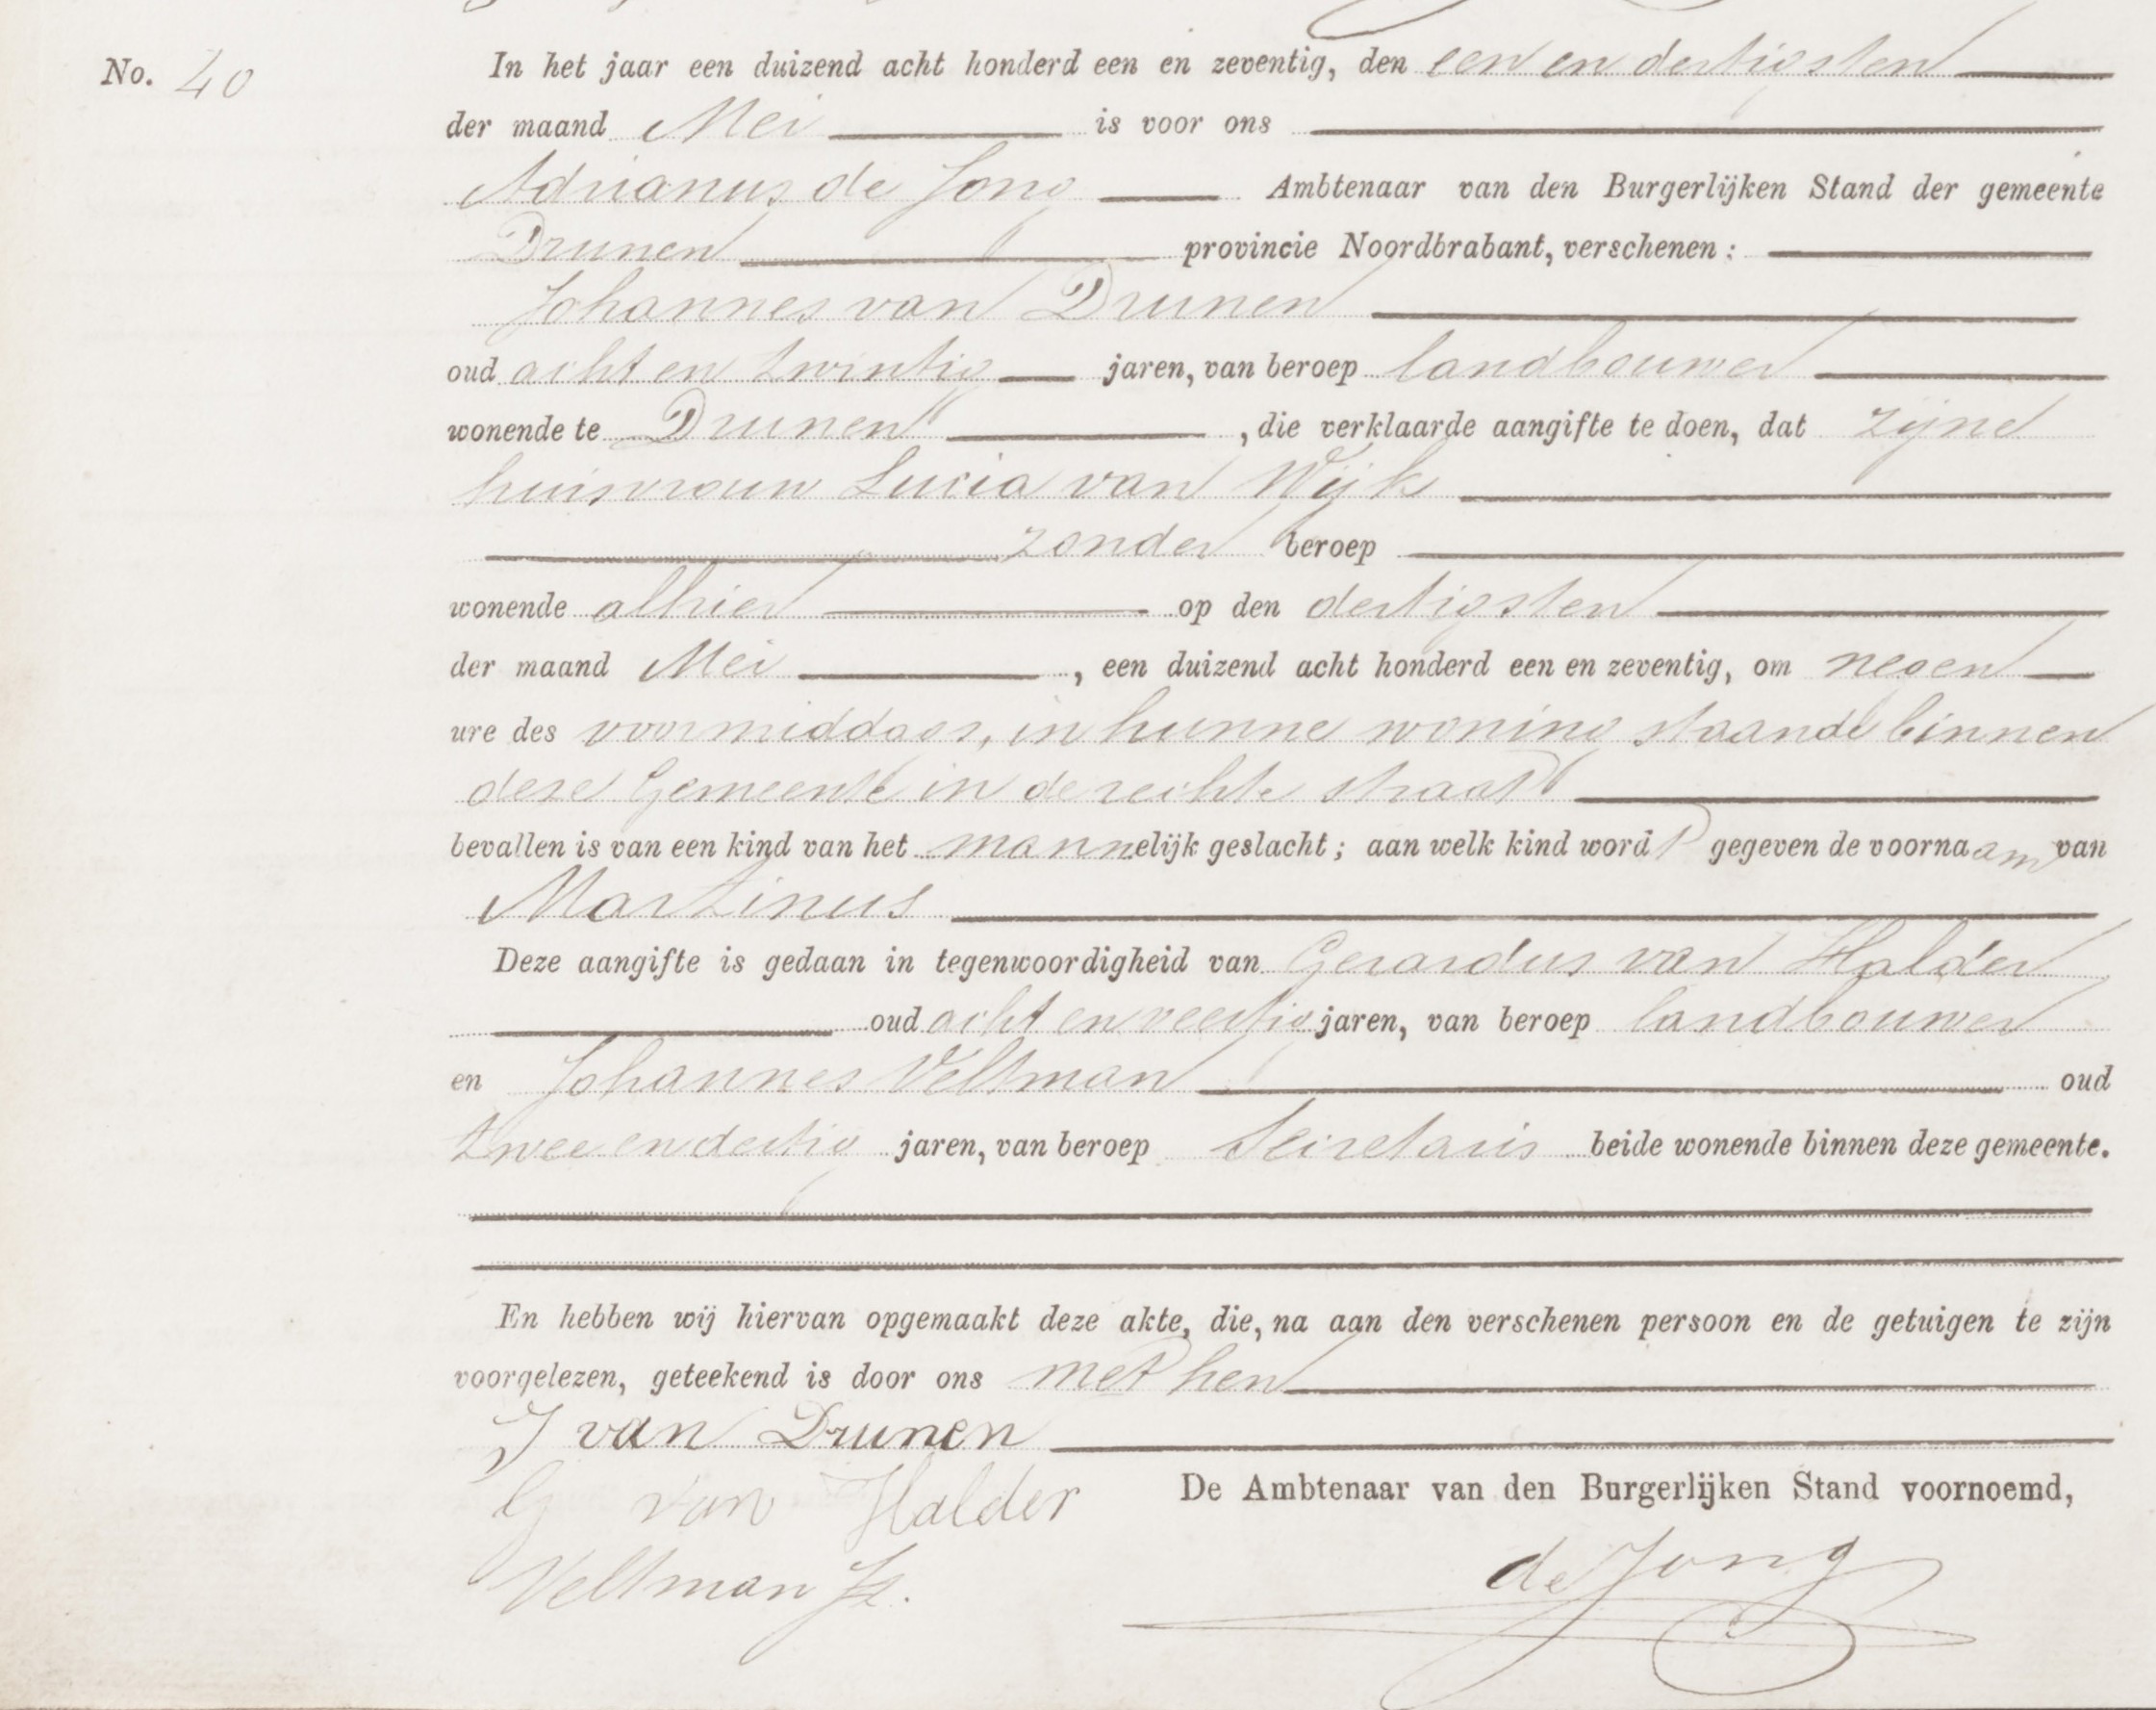 No. 40
In het jaar een duizend acht honderd een en zeventig, den een en dertigsten
der maand Mei is voor ons
Adrianus de Jong Ambtenaar van den Burgerlijken Stand der gemeente
Drunen provincie Noordbrabant, verschenen:
Johannes van Drunen
oud acht en twintig jaren, van beroep landbouwer
wonende te Drunen, die verklaarde aangifte te doen, dat zijne
huisvrouw Lucia van Wijk
zonder beroep
wonende alhier op den dertigsten
der maand Mei, een duizend acht honderd een en zeventig, om negen
ure des voormiddags, in hunne woning staande binnen
deze Gemeente in de rechte straat
bevallen is van een kind van het mannelijk geslacht; aan welk kind wordt gegeven de voornaam van
Martinus
Deze aangifte is gedaan in tegenwoordigheid van Gerardus van Halder
oud acht en veertig jaren, van beroep landbouwer
en Johannes Veltman oud
twee en dertig jaren, van beroep Secretaris beide wonende binnen deze gemeente.
En hebben wij hiervan opgemaakt deze akte, die, na aan den verschenen persoon en de getuigen te zijn
voorgelezen, geteekend is door ons met hen
J van Drunen
G van Halder
De Ambtenaar van den Burgerlijken Stand voornoemd,
Veltman Jz.
de Jong